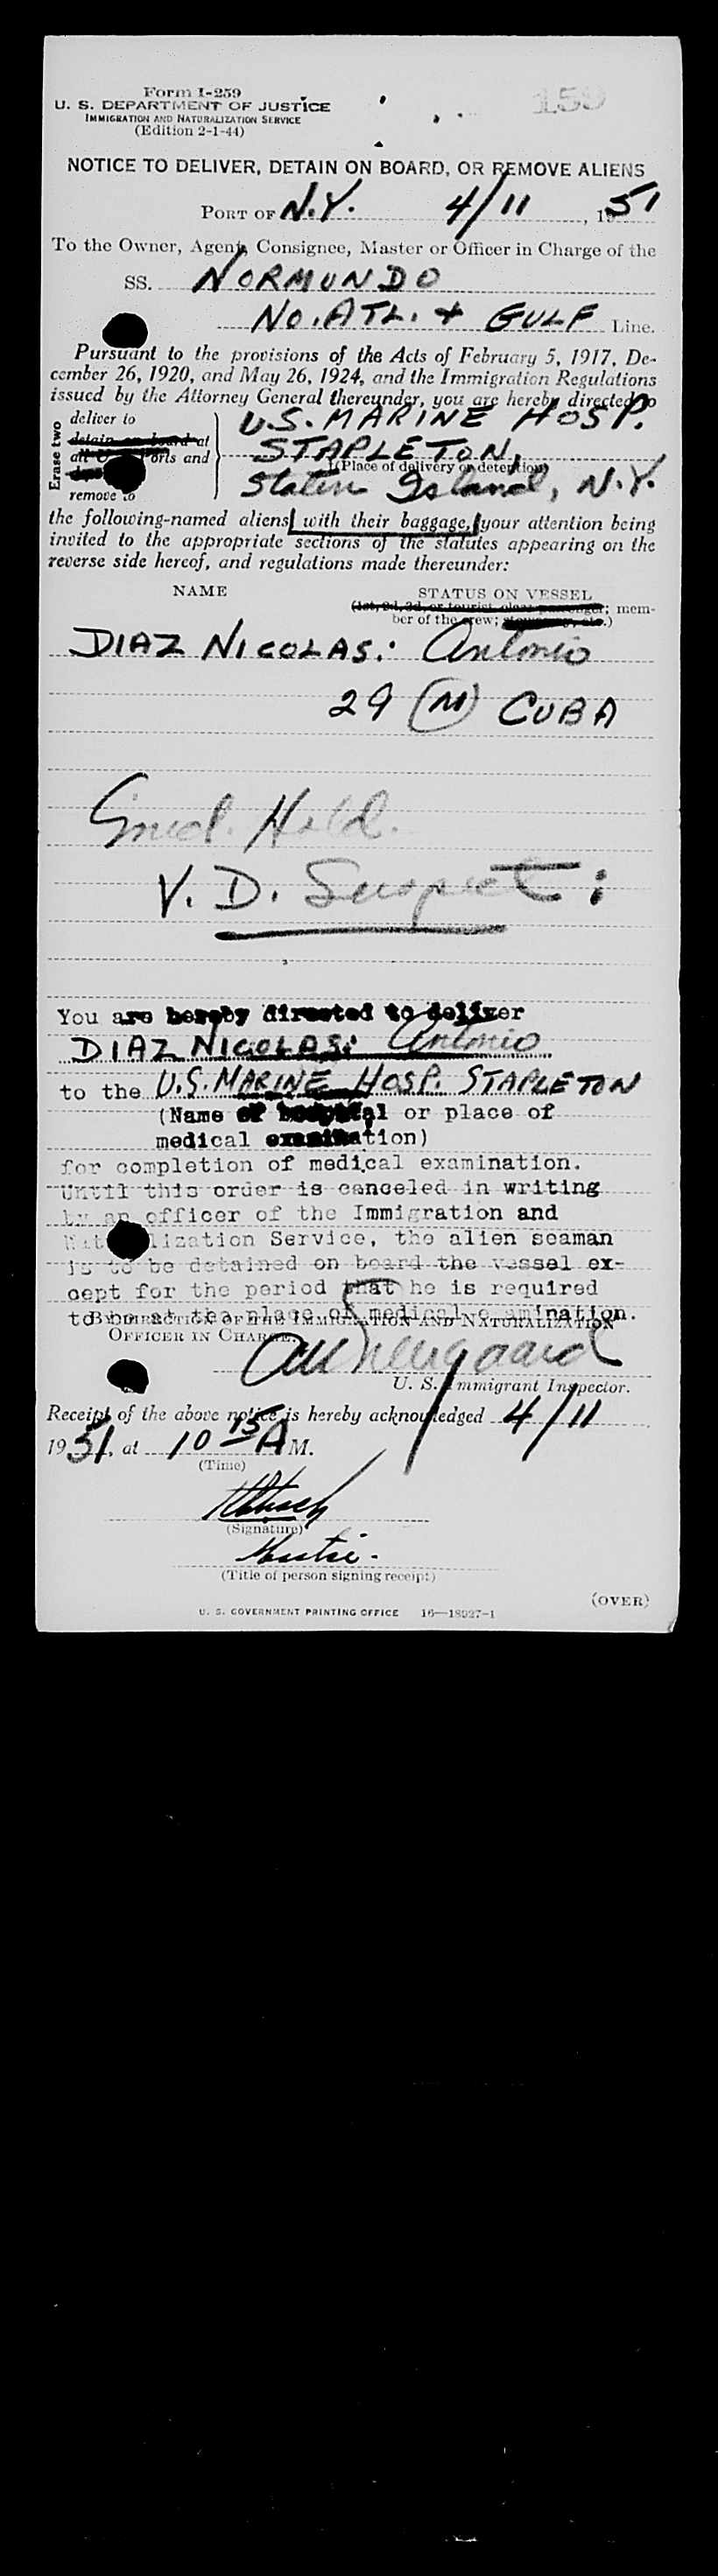 Form I-259
159
U. S. DEPARTMENT OF JUSTICE
IMMIGRATION AND NATURALIZATION SERVICE
(Edition 2-1-44)
NOTICE TO DELIVER, DETAIN ON BOARD, OR REMOVE ALIENS
PORT OF N.Y. 4/11, 1951
To the Owner, Agent, Consignee, Master or Officer in Charge of the
SS. NORMUNDO
NO. ATL. + GULF Line.
Pursuant to the provisions of the Acts of February 5, 1917, De-
cember 26, 1920, and May 26, 1924, and the Immigration Regulations
issued by the Attorney General thereunder, you are hereby directed to
Erase two
deliver to
detain on board at
all U orts and
remove to
U.S. MARINE HOSP.
STAPLETON,
(Place of delivery or detention)
Staten Island, N.Y.
the following-named aliens with their baggage, your attention being
invited to the appropriate sections of the statutes appearing on the
reverse side hereof, and regulations made thereunder:
NAME STATUS ON VESSEL
(1st, 2d, 3d, or tourist class passenger; mem-
ber of the crew; )
DIAZ NICOLAS: Antonio
29 (M) CUBA
Held.
V. D. Suspect:
You are hereby directed to deliver
DIAZ NICOLAS: Antonio
to the U.S. MARINE HOSP. STAPLETON
(Name of hospital or place of
medical examination)
for completion of medical examination.
Until this order is canceled in writing
by an officer of the Immigration and
Nat lization Service, the alien seaman
is to be detained on board the vessel ex-
cept for the period that he is required
to be at the place of medical examination.
BY DIRECTION OF THE IMMIGRATION AND NATURALIZATION
OFFICER IN CHARGE.
U. S. Immigrant Inspector.
Receipt of the above notice is hereby acknowledged 4/11
1951, at 10 15 A M.
(Time)
(Signature)
(Title of person signing receipt)
(OVER)
U. S. GOVERNMENT PRINTING OFFICE 16—18027-1